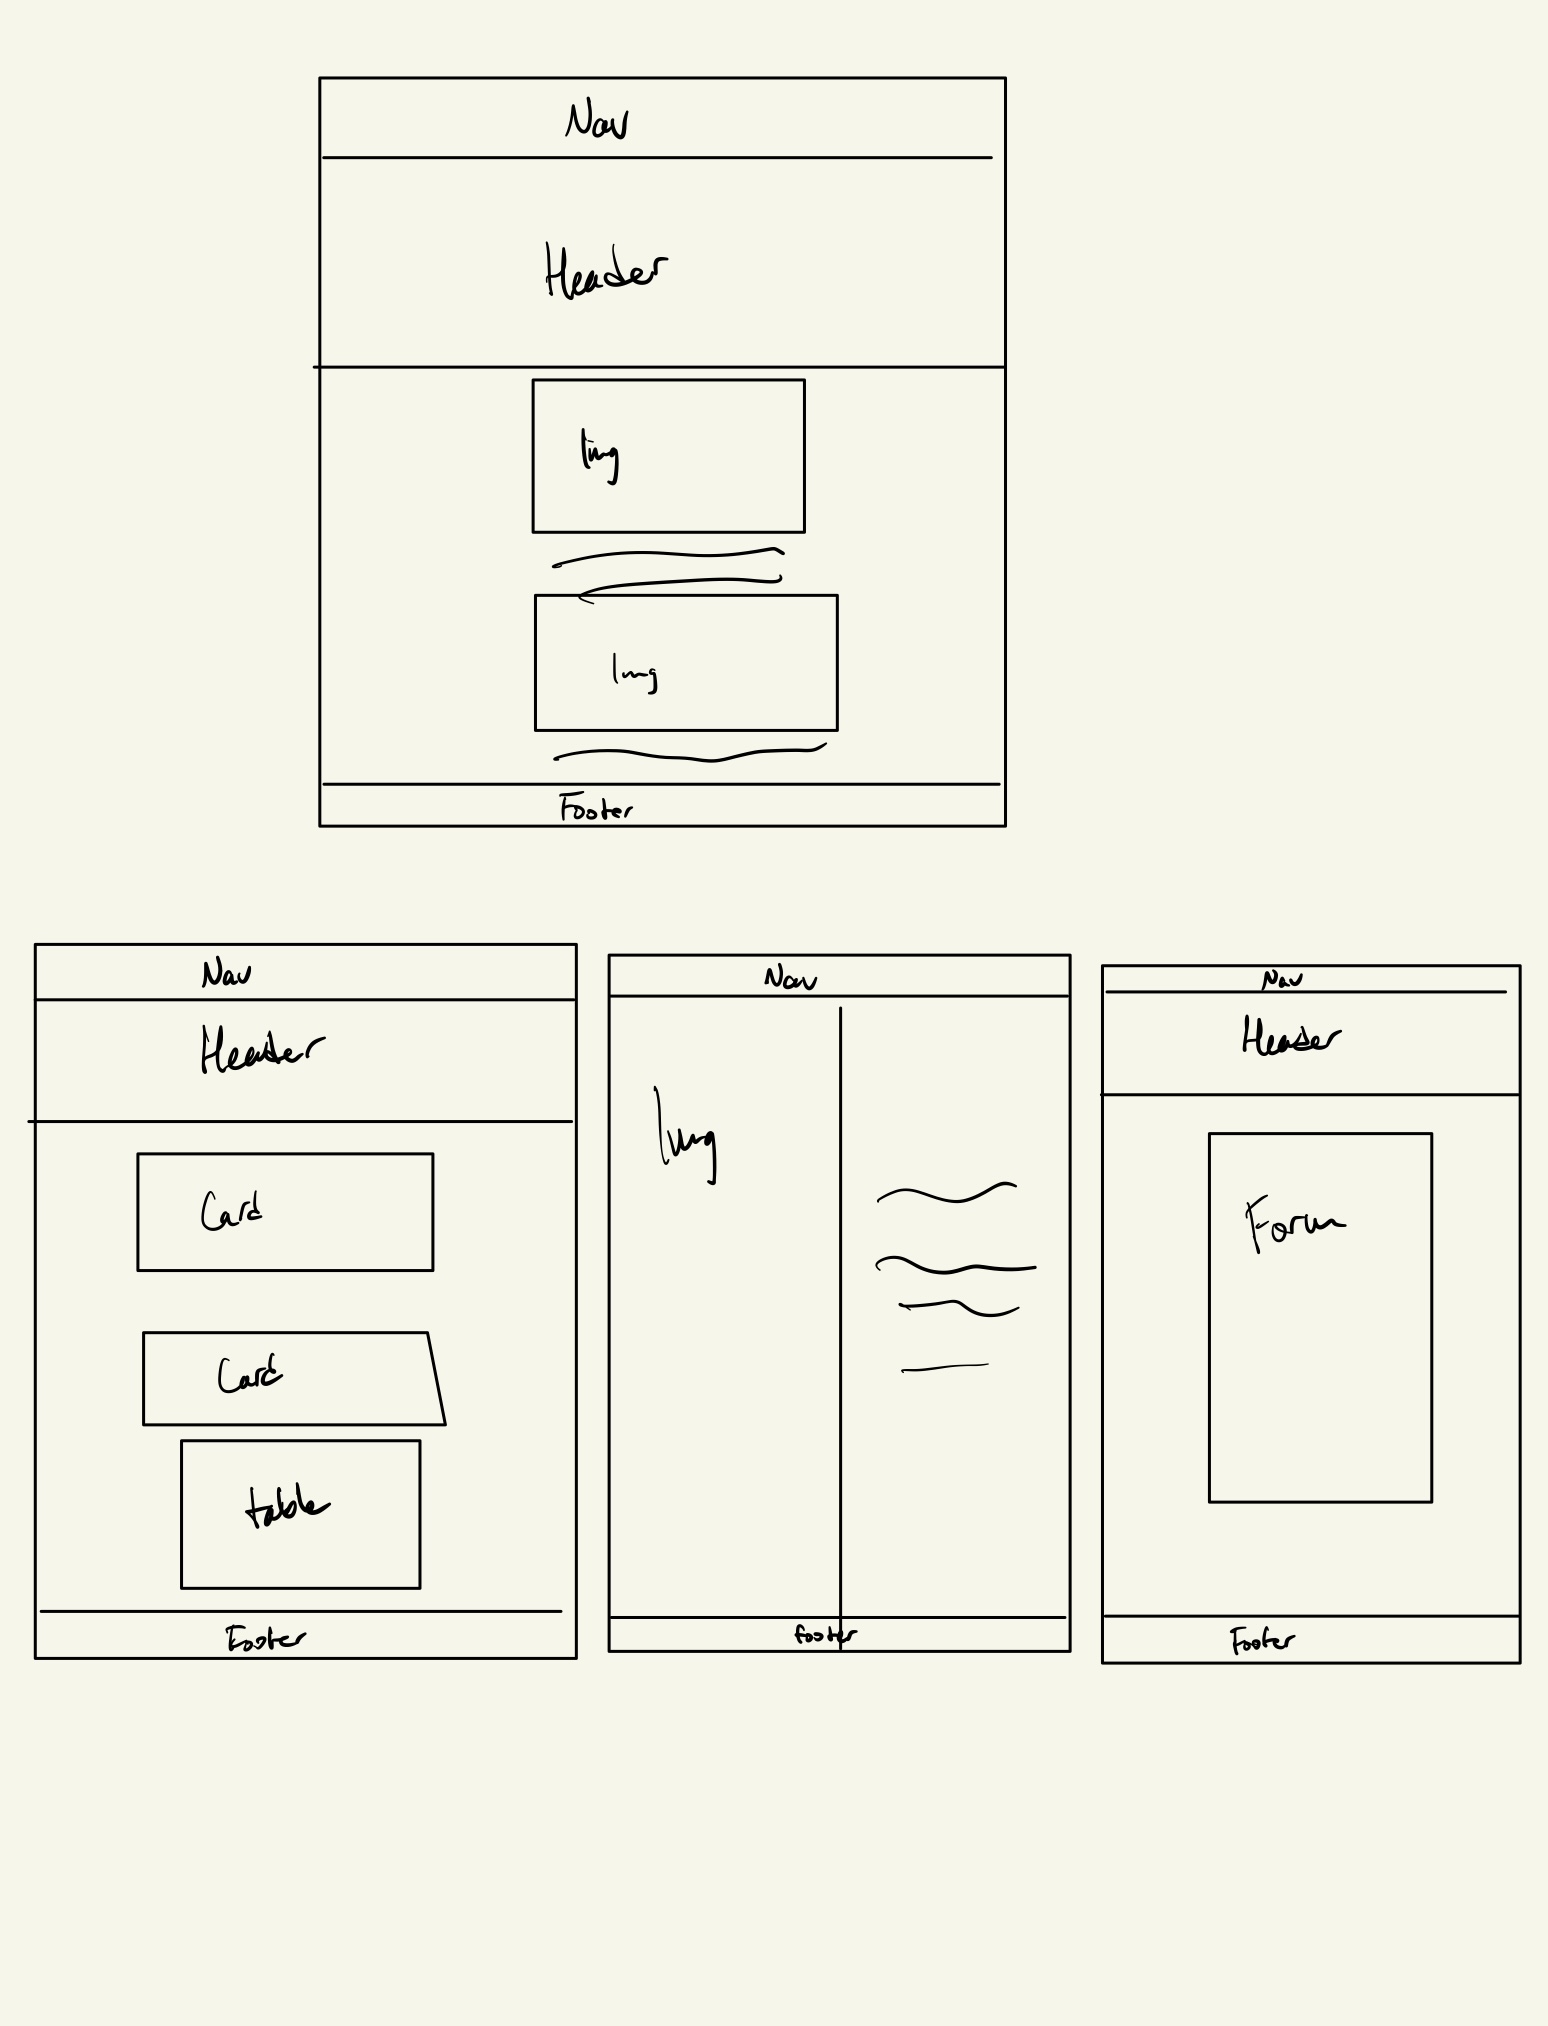 Nav
Header
Img
Img
Footer
Nav
Header
Card
Card
table
Footer
Nav
Img
footer
Nav
Header
Form
Footer